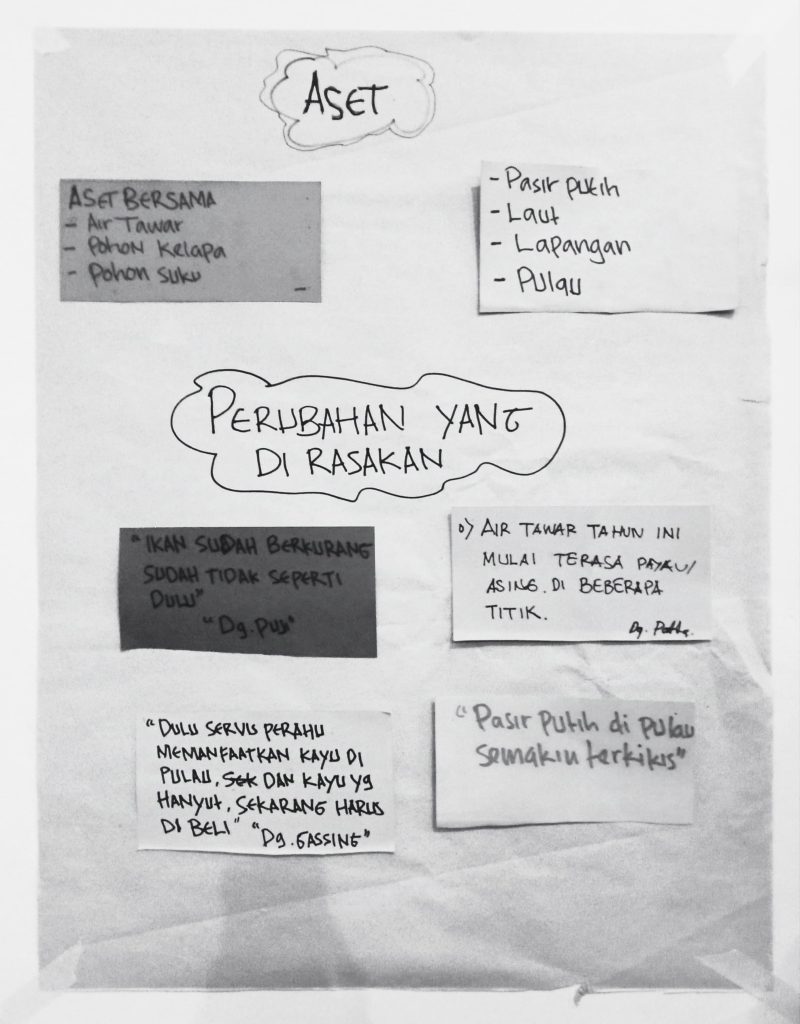 ASET
ASET BERSAMA
- Air Tawar
- Pohon Kelapa
- Pohon Suku
- Pasir putih
- Laut
- Lapangan
- Pulau
PERUBAHAN YANG
DI RASAKAN
"IKAN SUDAH BERKURANG
SUDAH TIDAK SEPERTI
DULU"
"Dg.
AIR TAWAR TAHUN INI
MULAI TERASA PAYAU/
ASING. DI BEBERAPA
TITIK.
Dg.
"DULU SERVIS PERAHU
MEMANFAATKAN KAYU DI
PULAU, DAN KAYU YG
HANYUT, SEKARANG HARUS
DI BELI" "Dg. GASSING"
"Pasir Putih di pulau
semakin terkikis"